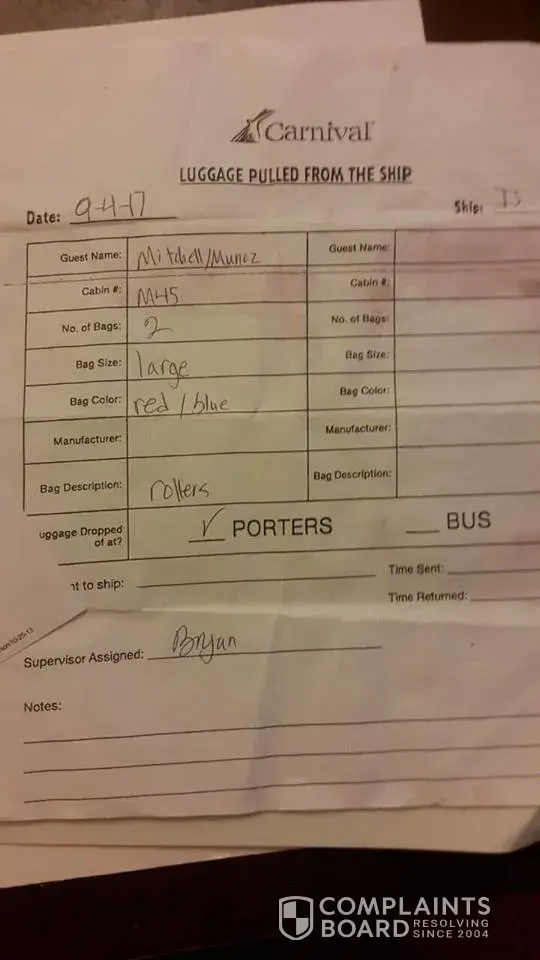 Carnival
LUGGAGE PULLED FROM THE SHIP
Date: 9-4-17 Ship:
Guest Name: Mitchell/Munoz Guest Name:
Cabin #: M45 Cabin #:
No. of Bags: 2 No. of Bags:
Bag Size: large Bag Size:
Bag Color: red / blue Bag Color:
Manufacturer: Manufacturer:
Bag Description: rollers Bag Description:
uggage Dropped of at? ✓ PORTERS BUS
nt to ship: Time Sent:
Time Returned:
10-25-13
Supervisor Assigned: Bryan
Notes:
COMPLAINTS
BOARD RESOLVING SINCE 2004